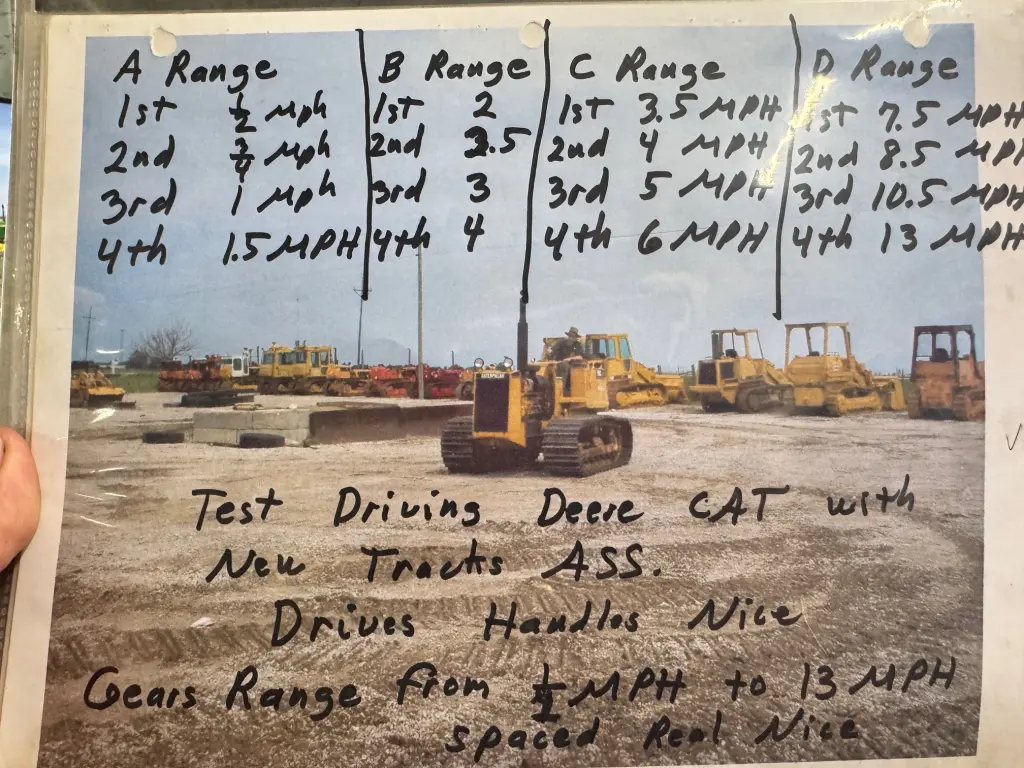 A Range B Range C Range D Range
1st 1/2 Mph 1st 2 1st 3.5 MPH 1st 7.5 MPH
2nd 3/4 Mph 2nd 2.5 2nd 4 MPH 2nd 8.5 MPH
3rd 1 Mph 3rd 3 3rd 5 MPH 3rd 10.5 MPH
4th 1.5 MPH 4th 4 4th 6 MPH 4th 13 MPH
CATERPILLAR
Test Driving Deere CAT with
New Tracks ASS.
Drives Handles Nice
Gears Range from 1/2 MPH to 13 MPH
spaced Real Nice